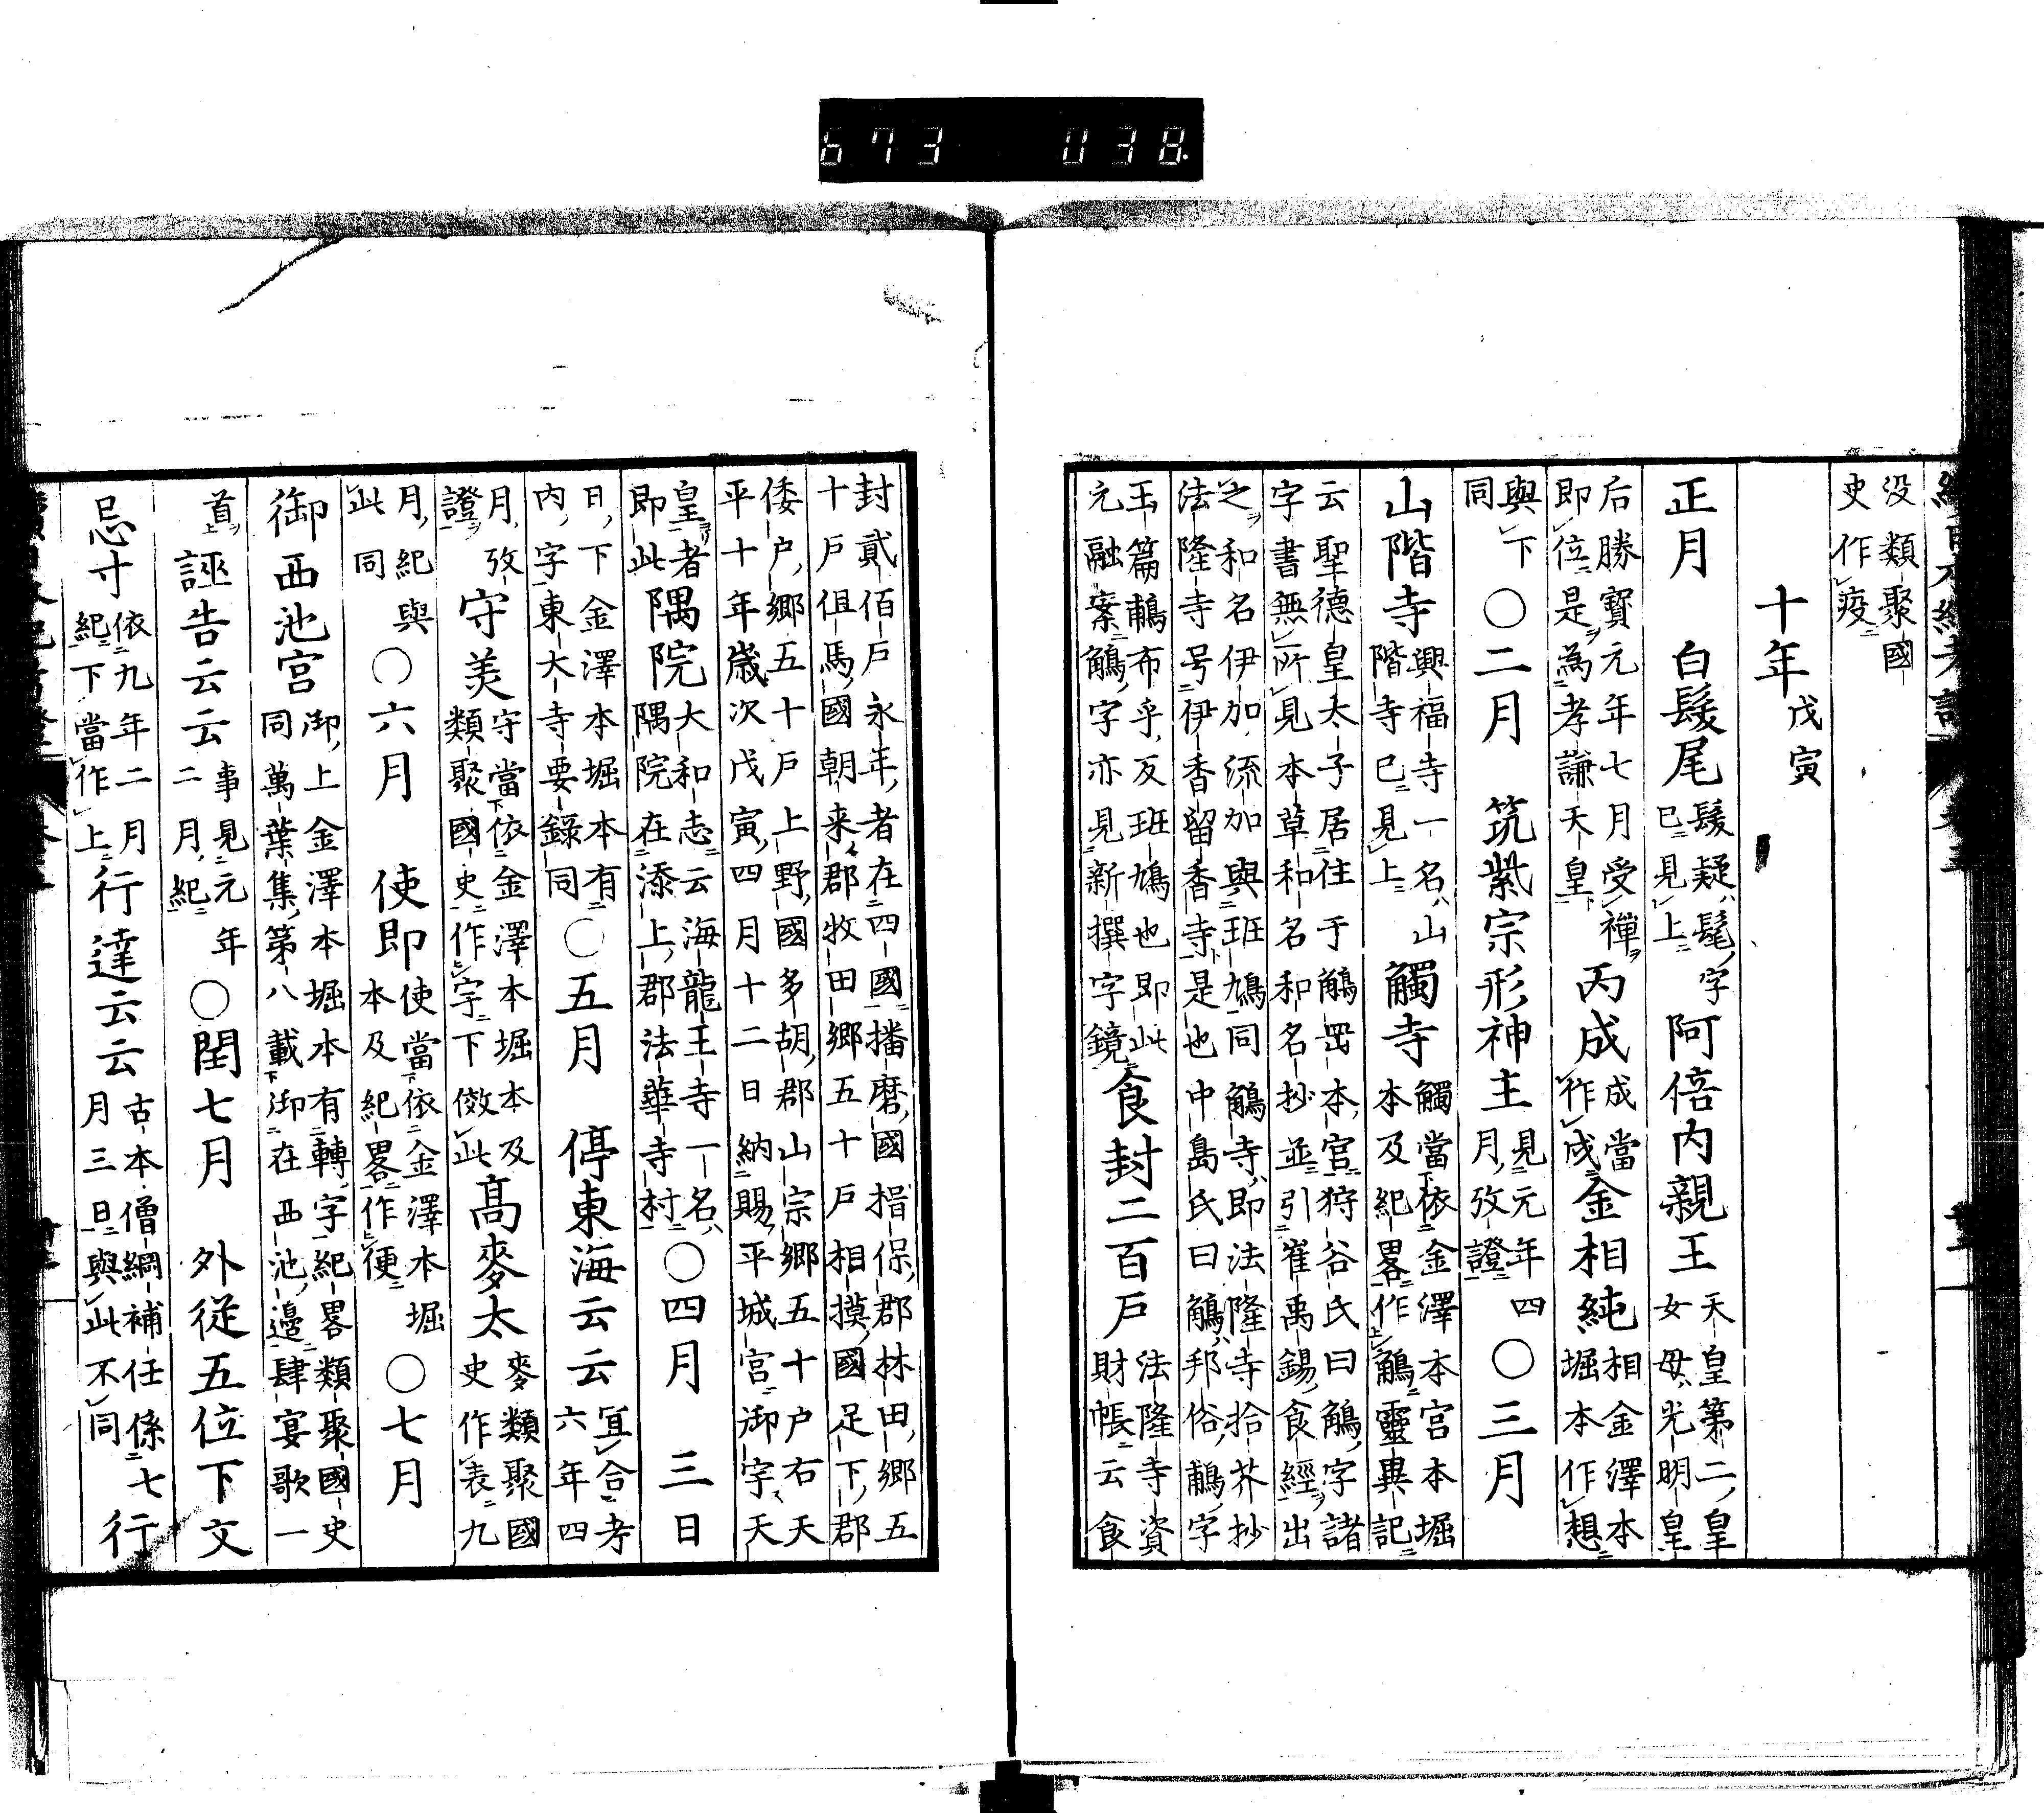 673 038.
没類聚國
史作疫
十年戊寅
正月 白髮尾髮疑髦字已見上阿倍内親王天皇第二皇女母光明皇
后勝寶元年七月受禪即位是為孝謙天皇丙成成當作戌金相純相金澤本堀本作想
與下同〇二月 筑紫宗形神主見元年四月攷證〇三月
山階寺興福寺一名山階寺已見上觸寺觸當依金澤本宮本堀本及紀畧作鵤靈異記
云聖德皇太子居住于鵤岡本宮狩谷氏曰鵤字諸字書無所見本草和名和名抄並引崔禹錫食經出
之和名伊加流加與班鳩同鵤寺即法隆寺拾芥抄法隆寺号伊香留香寺是也中島氏曰鵤邦俗鶺字
玉篇鶺布乎反班鳩也即此元融案鵤字亦見新撰字鏡食封二百戸法隆寺資財帳云食
封貳佰戸永年者在四國播磨國揖保郡林田郷五十戸但馬國朝来郡牧田郷五十戸相摸國足下郡
倭戸郷五十戸上野國多胡郡山宗郷五十户右天平十年歳次戊寅四月十二日納賜平城宮御字天
皇者即此隅院大和志云海龍王寺一名隅院在添上郡法華寺村〇四月 三日
日下金澤本堀本有内字東大寺要錄同〇五月 停東海云云宜合考六年四
月攷證守美守當依金澤本堀本及類聚國史作字下傚此髙麥太麥類聚國史作表九
月紀與此同〇六月 使即使當依金澤本堀本及紀畧作便〇七月
御西池宮御上金澤本堀本有轉字紀畧類聚國史同萬葉集第八載御在西池邊肆宴歌一
首誣告云云事見元年二月紀〇閏七月 外從五位下文
忌寸依九年二月紀下當作上行達云云古本僧綱補任係七月三日與此不同行